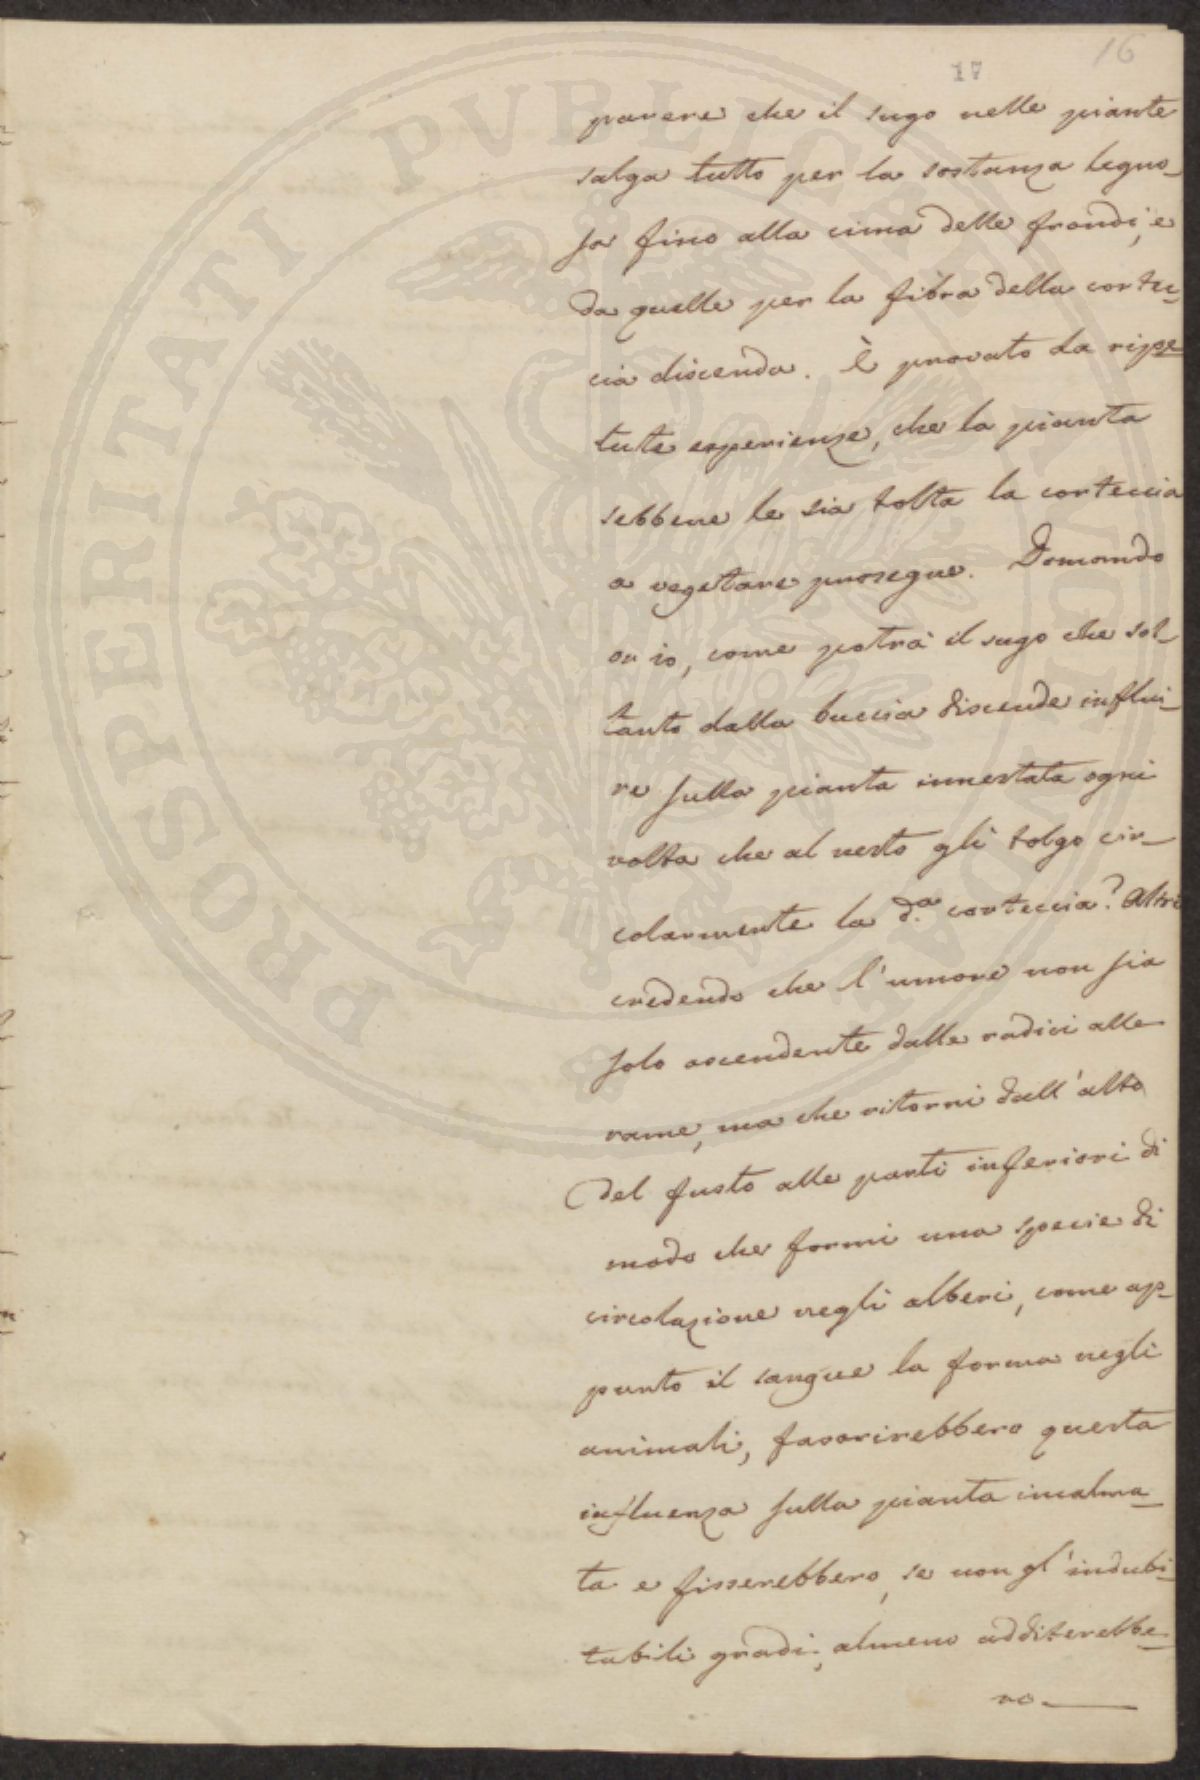 16
17
parere che il sugo nelle piante
salga tutto per la sostanza legno-
sa fino alla cima delle frondi, e
da quelle per la fibra della cortec-
cia discenda. È provato da ripe-
tute esperienze, che la pianta
sebbene le sia tolta la corteccia
a vegetare prosegue. Domando
or io, come potrà il sugo che sol-
tanto dalla buccia discende influi-
re sulla pianta innestata ogni
volta che al nesto gli tolgo cir-
colarmente la d.a corteccia? Altri
credendo che l'umore non sia
solo ascendente dalle radici alle
rame, ma che ritorni dall'alto
del fusto alle parti inferiori di
modo che formi una specie di
circolazione negli alberi, come ap-
punto il sangue la forma negli
animali, favorirebbero questa
influenza sulla pianta incalma-
ta e fisserebbero, se non gl'indubi-
tabili gradi, almeno additerebbe-
ro
PROSPERITATI PVBLICAE AVGENDAE